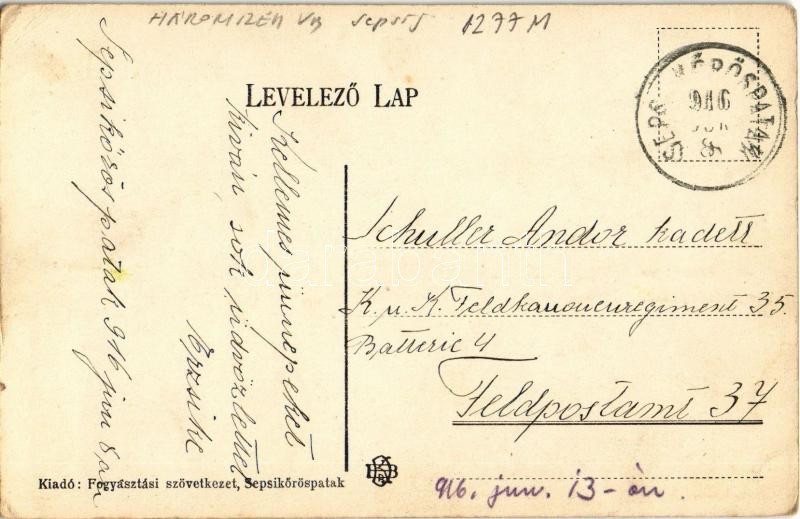 HÁROMSZÉK VM SEPSISJ 1277M
LEVELEZŐ LAP
SEPSI KŐRÖSPATAK
916 JUN 8
Sepsikőröspatak 916 jun 8-án
Kellemes ünnepeket
kiván, sok üdvözlettel
Erzsike
Schuller Andor kadett
K. u. K. Feldkanonenregiment 35.
Batterie 4
Feldpostamt 37
Kiadó: Fogyasztási szövetkezet, Sepsikőröspatak
916. jun. 13-án.